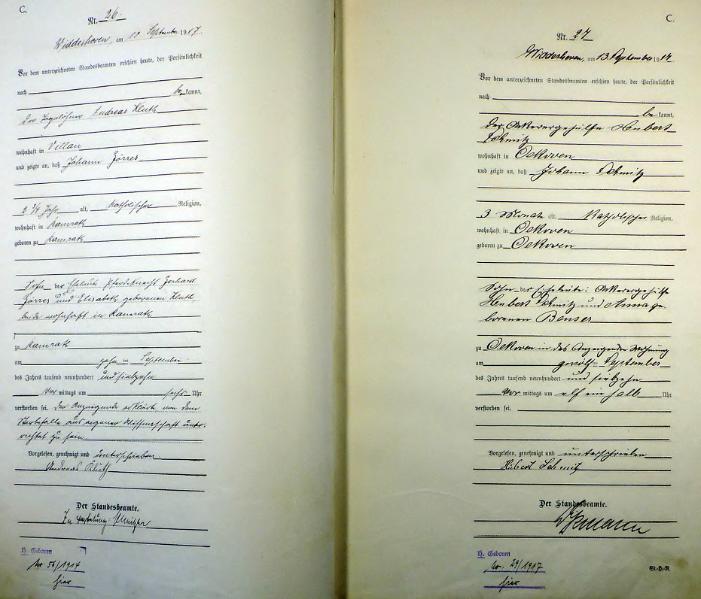 C.
Nr. 26
Widdeshoven, am 10 September 1917
Vor dem unterzeichneten Standesbeamten erschien heute, der Persönlichkeit
nach
be kannt,
Der Tagelöhner Andreas Kluth
wohnhaft in Vellau
und zeigte an, daß Johann Görres
2 3/4 Jahr alt, katholischer Religion,
wohnhaft in Kamrath
geboren zu Kamrath
Sohn der Eheleute Pferdeknecht Gerhard
Görres und Elisabeth geborenen Kluth
beide wohnhaft in Kamrath
zu Kamrath
am September
des Jahres tausend neunhundert und siebzehn
Vor mittags um sechs Uhr
verstorben sei. Der Anzeigende erklärte von dem
Sterbefalle aus eigener Wissenschaft unter-
richtet zu sein
Vorgelesen, genehmigt und unterschrieben
Andreas Kluth
Der Standesbeamte.
In Vertretung
H. Geboren
No 56/1914
hier
C.
Nr. 27
Widdeshoven, am 13 September 1917
Vor dem unterzeichneten Standesbeamten erschien heute, der Persönlichkeit
nach
be kannt,
der Hubert
Schmitz
wohnhaft in Oekoven
und zeigte an, daß Johann Schmitz
3 Monate alt, katholischer Religion,
wohnhaft in Oekoven
geboren zu Oekoven
Sohn der Eheleute:
Hubert Schmitz und Anna ge-
borenen Benser
zu Oekoven in des Anzeigenden Wohnung
am zwölften September
des Jahres tausend neunhundert und siebzehn
Vor mittags um elf ein halb Uhr
verstorben sei.
Vorgelesen, genehmigt und unterschrieben
Hubert Schmitz
Der Standesbeamte.
H. Geboren
No. 29/1917
hier